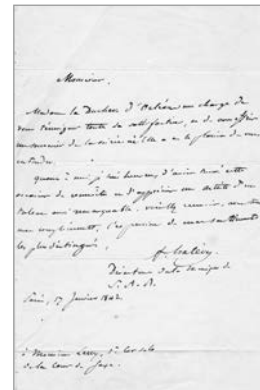 Monsieur.
Madame la Duchesse d'Orléans me charge de
vous témoigner toute sa satisfaction, et de vous offrir
un souvenir de la soirée où Elle a eu le plaisir de vous
entendre.
quant à moi, je suis heureux d'avoir trouvé cette
occasion de connaître et d'apprécier un artiste d'un
talent aussi remarquable. veuillez recevoir, avec
mes compliments, l'expression de mes sentiments
les plus distingués,
f. halévy.
Directeur de la musique de
S. A. R.
Paris, 17 Janvier 1842.
à Monsieur
de la cour de Saxe.